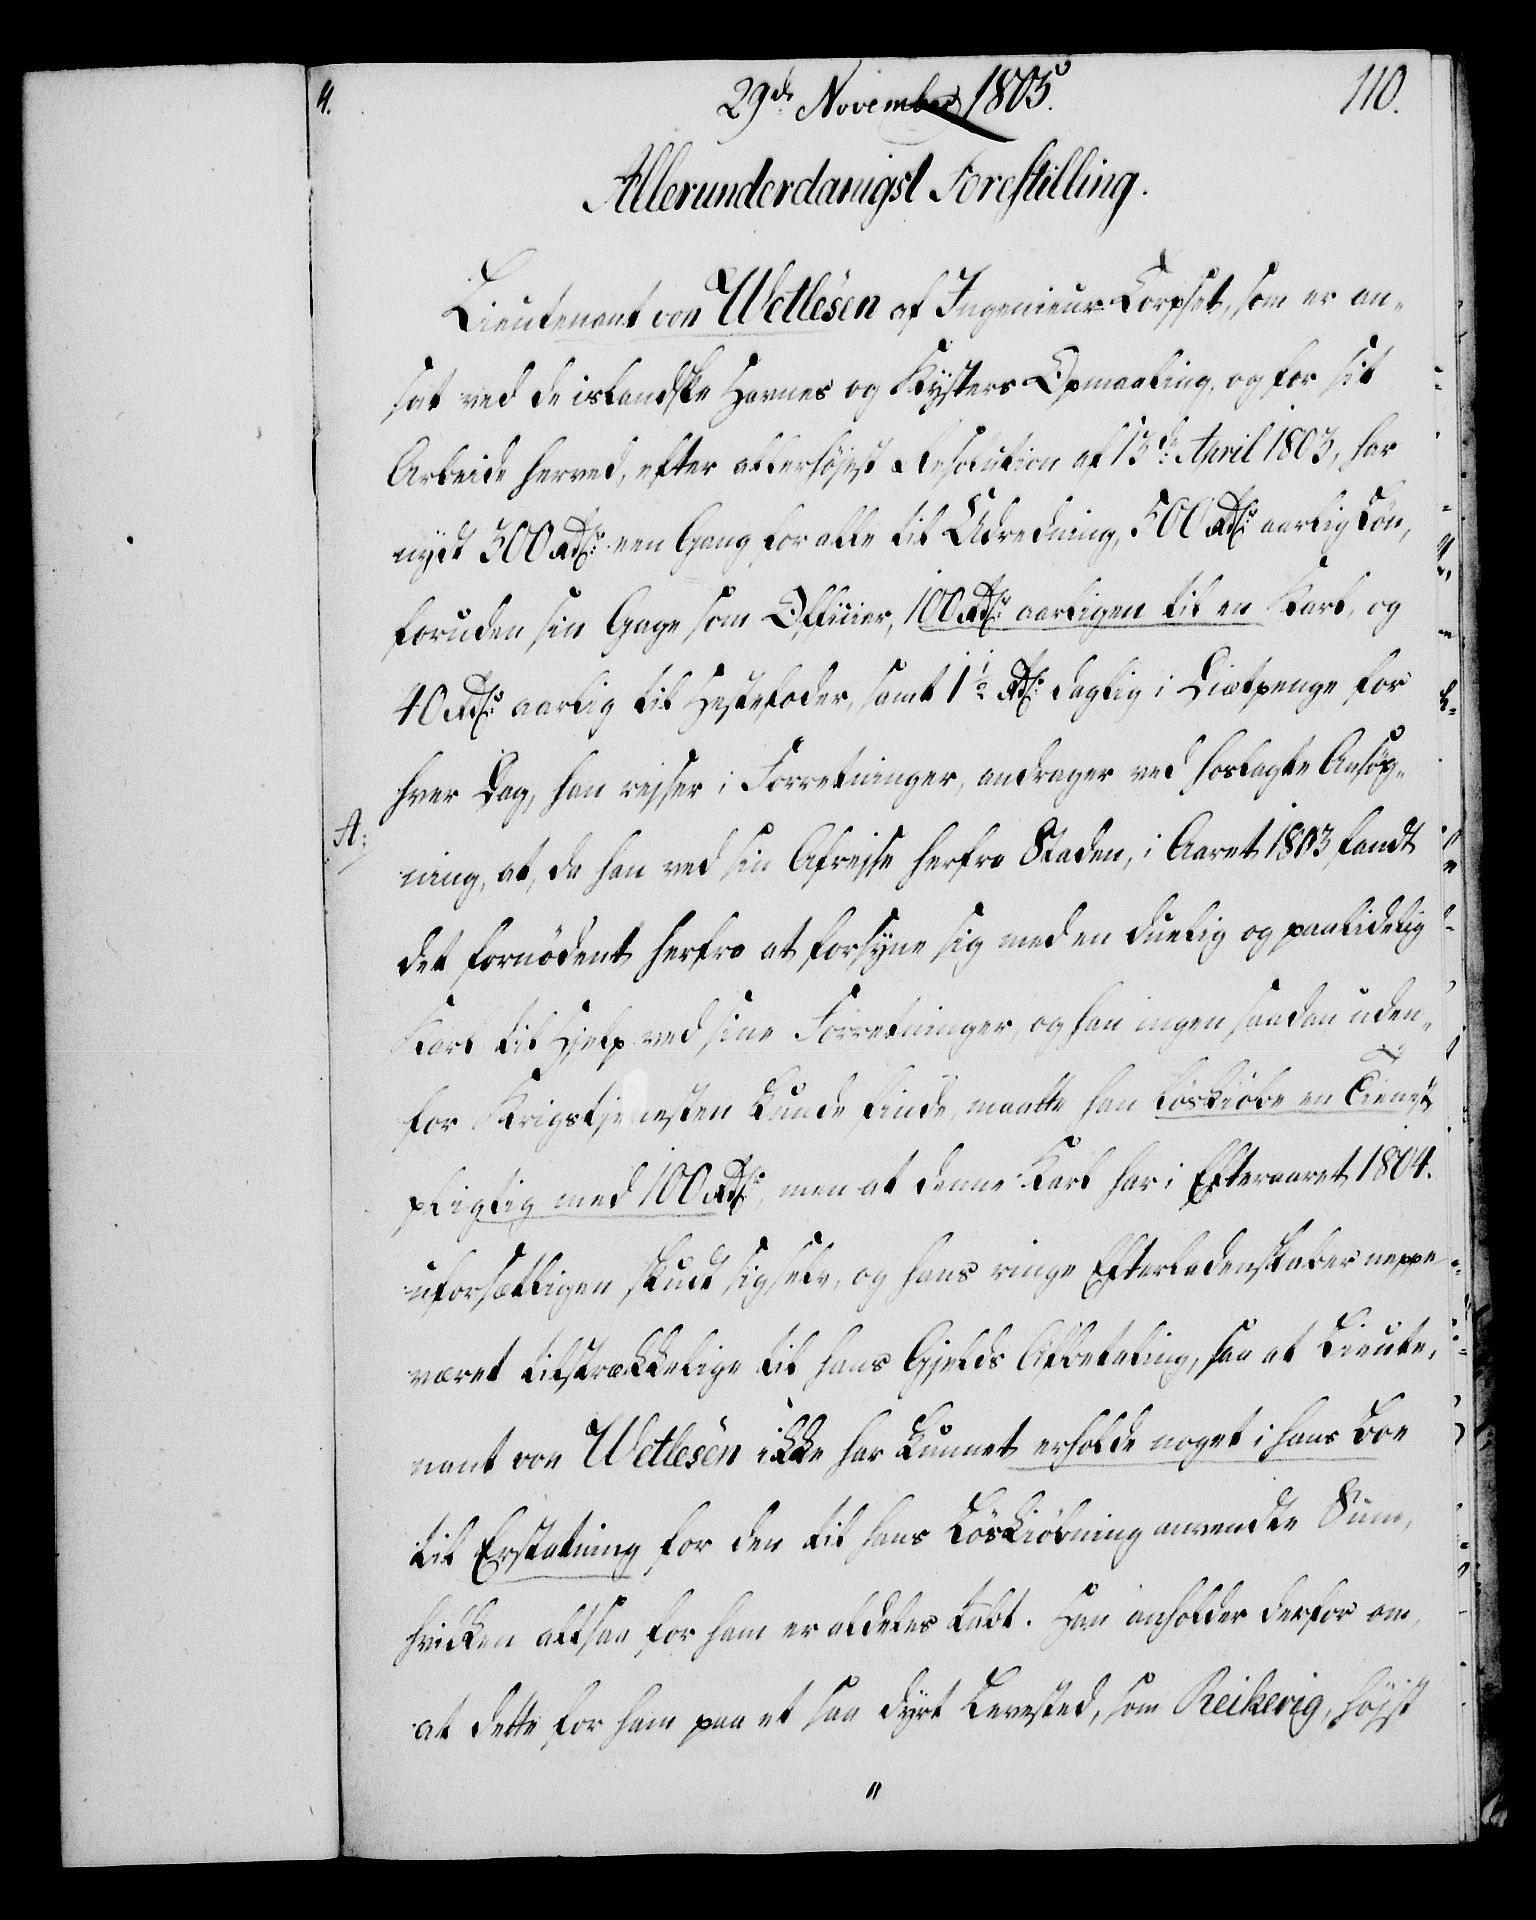 4.
29de November 1805.
110.
Allerunderdanigst Forestilling.
Lieutenant von Wetlesen af Ingenieur-Corpset, som er an-
sat ved de islandske Havnes og Kysters Opmaaling, og for sit
Arbeide herved, efter allerhøjest Resolution af 13de April 1803, har
nydt 300 Rdlr. een Gang for alle til Udredning, 500 Rdlr. aarlig Løn,
foruden sin Gage som Officier, 100 Rdlr. aarligen til en Karl, og
40 Rdlr. aarlig til Hestefoder, samt 1½ Rdlr. daglig i Diætpenge for
hver Dag, han rejser i Forretninger, andrager ved hoslagte Ansøg-
A:
ning, at, da han ved sin Afrejse herfra Staden, i Aaret 1803 fandt
det fornødent herfra at forsyne sig med en duelig og paalidelig
Karl til Hjelp ved sine Forretninger, og han ingen saadan uden-
for Krigstjenesten kunde finde, maatte han løskiøbe en Tienest
pligtig med 100 Rdlr., men at denne Karl har i Efteraaret 1804.
uforsætligen skudt sig selv, og hans ringe Efterladenskaber neppe
været tilstrækkelige til hans Gjelds Afbetaling, saa at Lieute-
nant von Wetlesen ikke har kunnet erholde noget i hans Boe
til Erstatning for den til hans Løskiøbning anvendte Sum,
hvilken altsaa for ham er aldeles tabt. Han anholder derfor om,
at dette for ham paa et saa dyrt Levested, som Reikevig, højst
"